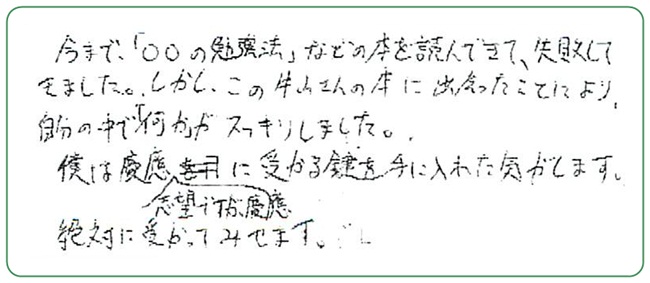 今まで、「〇〇の勉強法」などの本を読んできて、失敗して
きました。しかし、この牛山さんの本に出会ったことにより、
自分の中で「何か」がスッキリしました。
僕は慶應に受かる鍵を手に入れた気がします。
志望ですが慶應
絶対に受かってみせます。